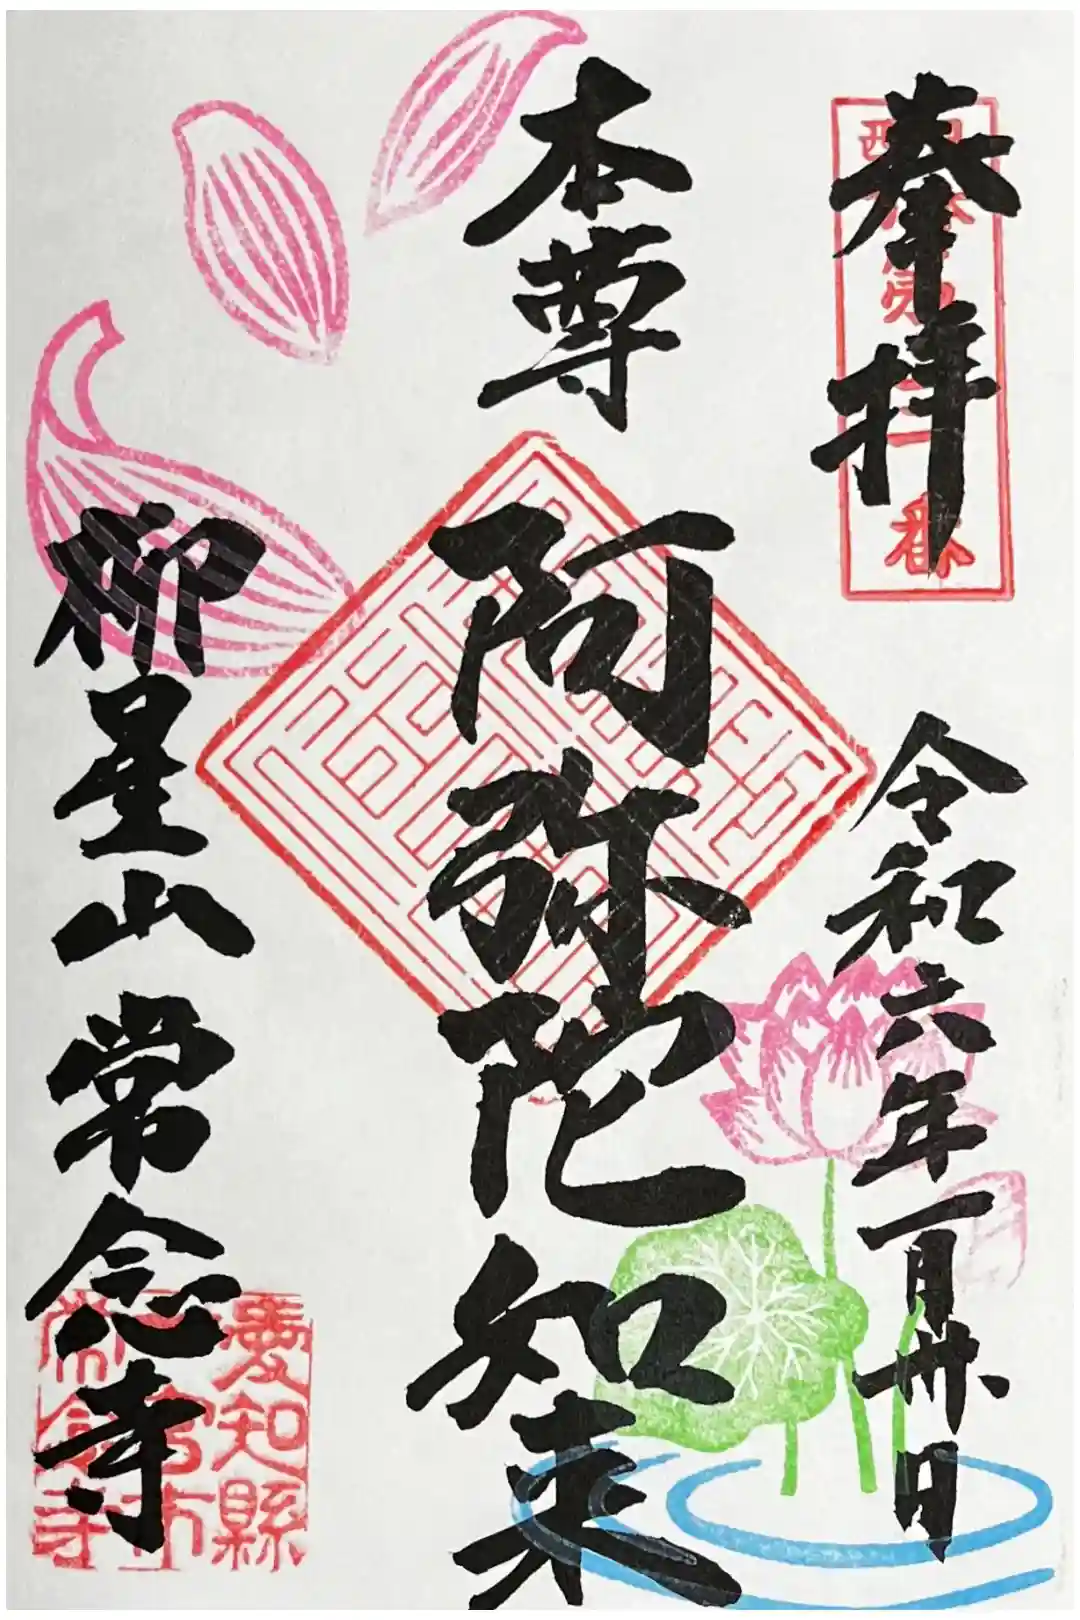 奉拝
令和六年一月卅日
本尊
阿弥陀如来
柳星山常念寺
愛知縣
一宮市
常念寺